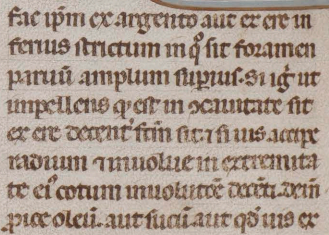 fac ip̄m ex argento aut ex ere in
ferius strictum in q̊ sit foramen
paruū amplum sup̲ius. Si ig̃ ut
impellens q̲ est in ꝯcauitate sit
ex ere decent̾ sit ⁊ si uis accipe
radium ⁊ inuolue in extremita
te ei᷒ cotum inuolut̄
pice oleū. aut sucū aut qd̄ uis ex